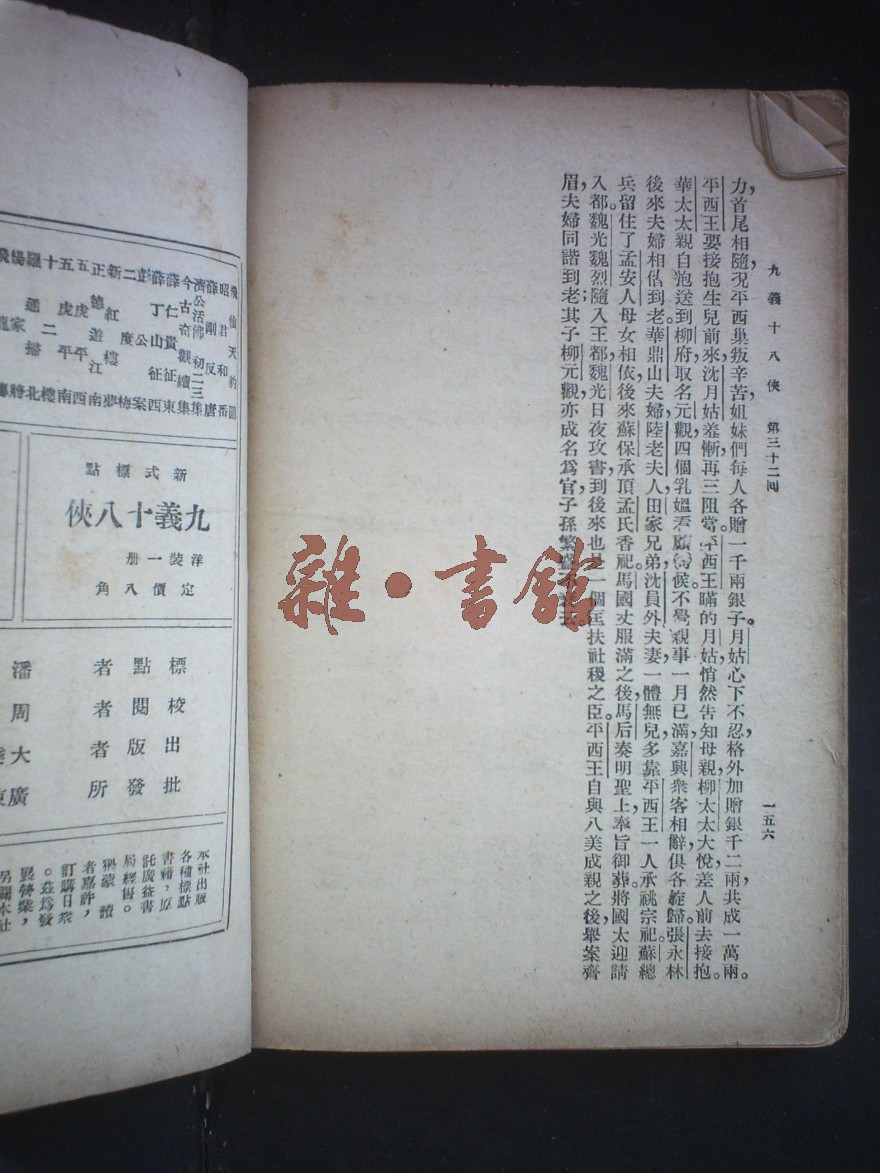 九義十八俠 第三十二回
一五六
力，首尾相隨，況平西巢叛辛苦，姐妹們每人各贈一千兩銀子。月姑心下不忍，格外加贈銀千二兩，共成一萬兩。
平西王要接抱生兒前來，沈月姑羞慚，再三阻當，平西王瞞的月姑悄然告知母親，柳太太大悅，差人前去接抱。
華太太親自抱送到柳府，取名元觀，四個乳媼看顧伺候，不覺親事一月已滿，嘉興衆客相辭，俱各旋歸。張永林
後來夫婦相俬到老，華鼎山夫婦，陸老夫人，田家兄弟，沈員外夫妻一體無兒，多靠平西王一人承祧宗祀。蘇總
兵留住了孟安人母女相依，後來蘇保承頂孟氏香祀。馬國丈服滿之後，馬后奏明聖上，奉旨御葬。將國太迎請
入都，魏光魏烈隨入王都，魏光日夜攻書，到後來也是一個匡扶社稷之臣。平西王自與八美成親之後，舉案齊
眉，夫婦同諧到老；其子柳元觀，亦成名爲官，子孫繁
雜·書館
飛仙天豹圖
昭君和番
薛剛反唐
濟公活佛初二三集
今古奇觀續集
薛仁貴征東
薛丁山征西
彭公案
二度梅
新紅樓夢
正德遊江南
五虎平西
五虎平南
十二樓
羅通掃北
楊家將
新式標點
九義十八俠
洋裝一册
定價八角
標點者 潘
校閱者 周
出版者 大
批發所 廣
本社出版
各種標點
書籍，原
託廣益書
局經售。
猥蒙 讀
者嘉許，
訂購日衆
。茲爲發
展營業，
另闢本社